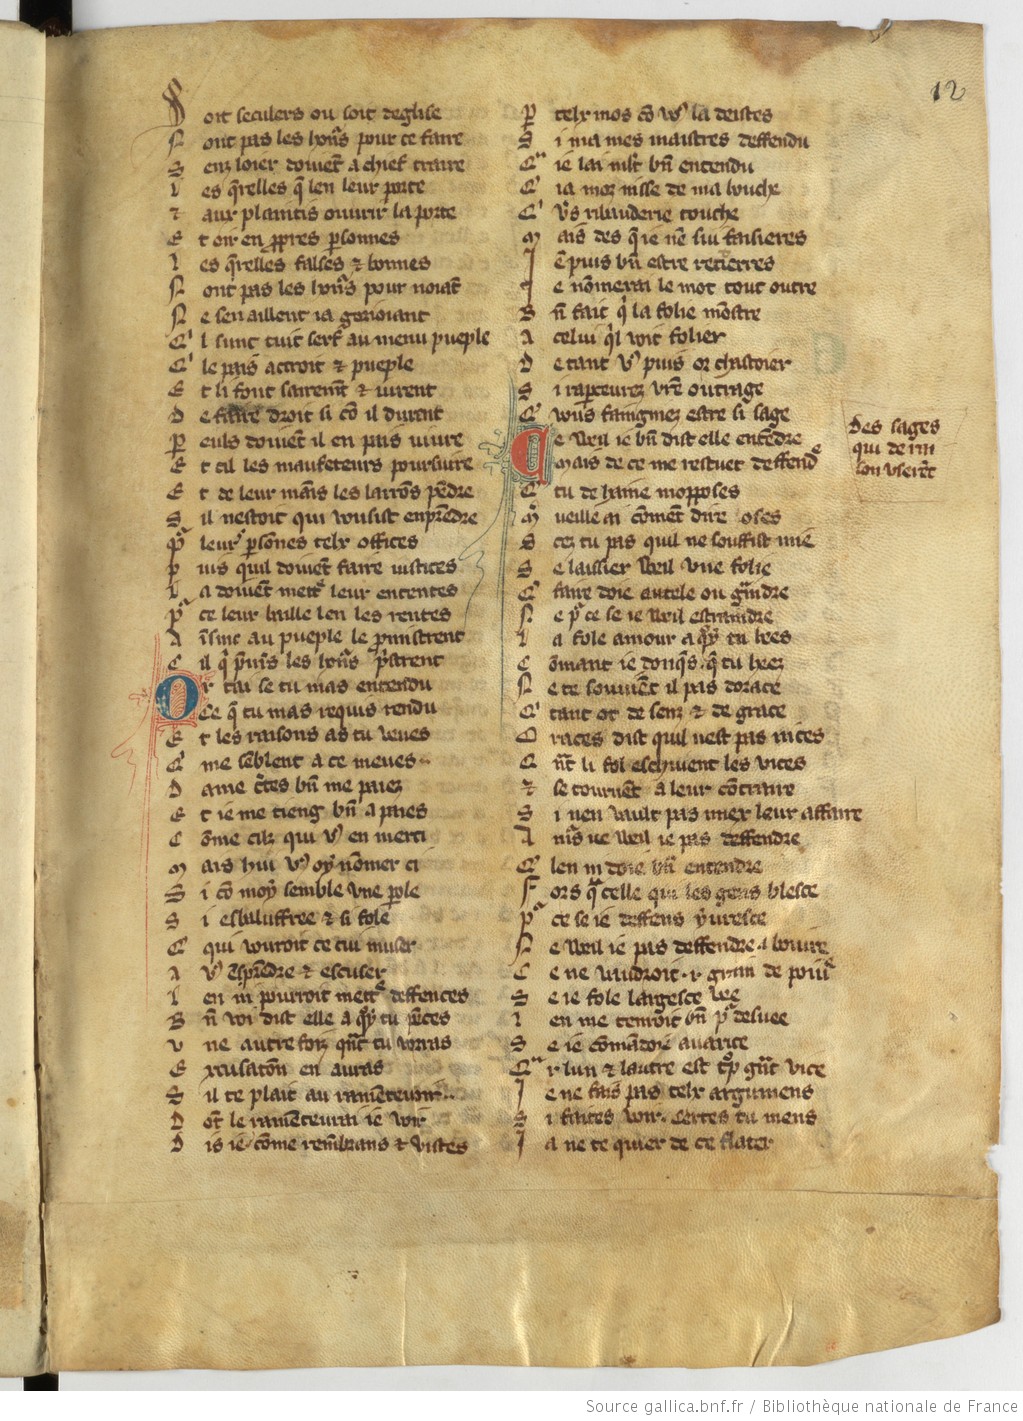 12
Soit seculers ou soit deglise
N ont pas les hōn̄s pour ce faire
S enz loier doiuēt a chief traire
L es q̄relles q̄ len leur porte
⁊ aux plaintis ouurir la porte
E t oir en ꝓpres ꝑsonnes
L es q̄relles falses ⁊ bonnes
N ont pas les hōn̄s pour noiāt
N e sen aillent ia goгоiant
C' l sunt tuit serf au menu pueple
C' le païs acroit ⁊ pueple
E t li font sairemt̄ ⁊ iurent
D e faire droit si cō il durent
P euls doiuēt il en pais uiure
E t cil les maufeteurs poursuire
E t de leur mains les larrōs pēdre
S il nestoit qui vousist enprēdre
Pᵃ leurs ꝑsones telx offices
P uis quil doiuēt faire iustices
L a doiuēt mettᵉ leur ententes
Pᵃ ce leur baille len les rentes
A īsinc au pueple le ꝓmistrent
C il q̄ pmiers les hōn̄s pristrent
Or tai se tu mas entendu
Ce q̄ tu mas requis rendu
E t les raisons as tu veues
C' me sēblent a ce meues
D ame c̄tes bn̄ me paiez
E t ie me tieng bn̄ a paies
C ōme cilz qui vꝰ en merci
M ais hui vꝰ oy nōmer ci
S i cō moy semble vne ꝑole
S i esbaluffree ⁊ si fole
C' qui vouroit ce cui muser
A vꝰ ēsprēdre ⁊ escuser
L en ni pourroit mettᵉ deffences
B n̄ voi dist elle a q̄y tu pēces
V ne autre foiz qn̄t tu vorras
E xcusaton en auras
S il te plait au ramēteuoir
D ōt le ramēteurai ie voir
D is ie cōme remēbrans ⁊ vistes
P telx mos cō vꝰ la deistes
S i ma mes maistres deffendu
Cᵃ ie lai ml̄t bn̄ entendu
C' ia moz nisse de ma bouche
C' vꝰs ribauderie touche
M ais des q̄ ie nē sui faisieres
J ē puis bn̄ estre recitieres
J e nōmerai le mot tout outre
B n̄ fait q̄ la folie mōstre
A celui q̄l voit folier
D e tant vꝰ puis or chastoier
S i raꝑceurez vr̄e outrage
C' vous faingniez estre si sage
Ce weil ie bn̄ dist elle entēdre
Mais de ce me restuet deffendᵉ
C' tu de haine mopposes
M̄ ueille ai cōmēt dire oses
S cez tu pas quil ne souffist mie
S e laissier weil vne folie
C' faire doie autele ou grīndre
N e pᵃ ce se ie weil estaindre
L a fole amour a q̄y tu bees
C ōmant ie donq̄s q̄ tu heez
N e te souuiēt il pas dorace
C' tant ot de senz ⁊ de grace
O races dist quil nest pas nices
C n̄t li fol eschiuent les vices
⁊ se tournēt a leur cōtraire
S i nen vault pas miex leur affaire
A m̄s ne weil ie pas deffendre
C' len ni doie bn̄ entendre
F ors q̄ celle qui les gens blesce
Pᵃ ce se ie deffens yuresce
N e weil ie pas deffendre a boiure
C e ne vaudroit .i. grain de poiuᵉ
S e ie fole largesce vee
L en me tenroit bn̄ pᵃ desuee
S e ie cōmādoie auarice
Cᵃ r lun ⁊ lautre est tᵒp gn̄t vice
J e ne fais pas telx argumens
S i faites voir. Certes tu mens
J a ne te quier de ce flater
Des sages
qui de rīn
lon vserēt
Source gallica.bnf.fr / Bibliothèque nationale de France